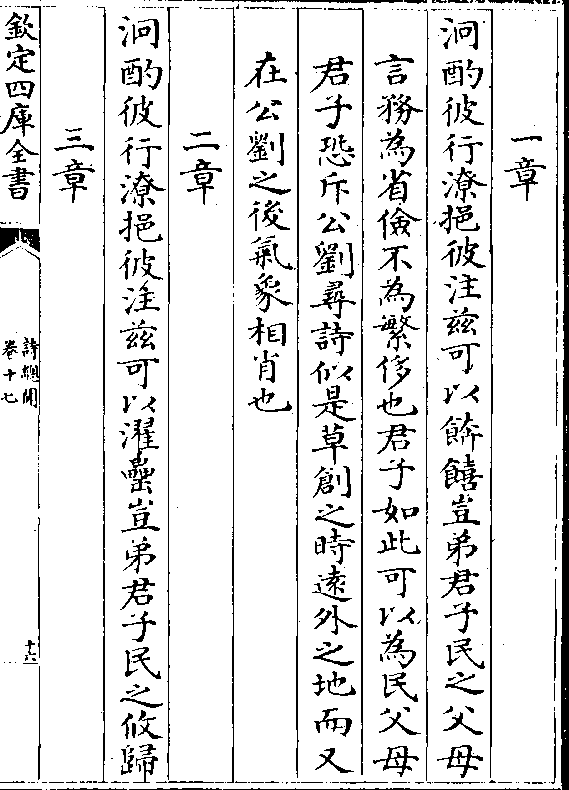 一章
泂酌彼行潦挹彼注兹可以餴饎豈弟君子民之父母
言務為省儉不為繁侈也君子如此可以為民父母
君子恐斥公劉尋詩似是草創之時遠外之地而又
在公劉之後氣象相肖也
二章
泂酌彼行潦挹彼注兹可以濯罍豈弟君子民之攸歸
三章
欽定四庫全書
詩總聞
卷十七
十六